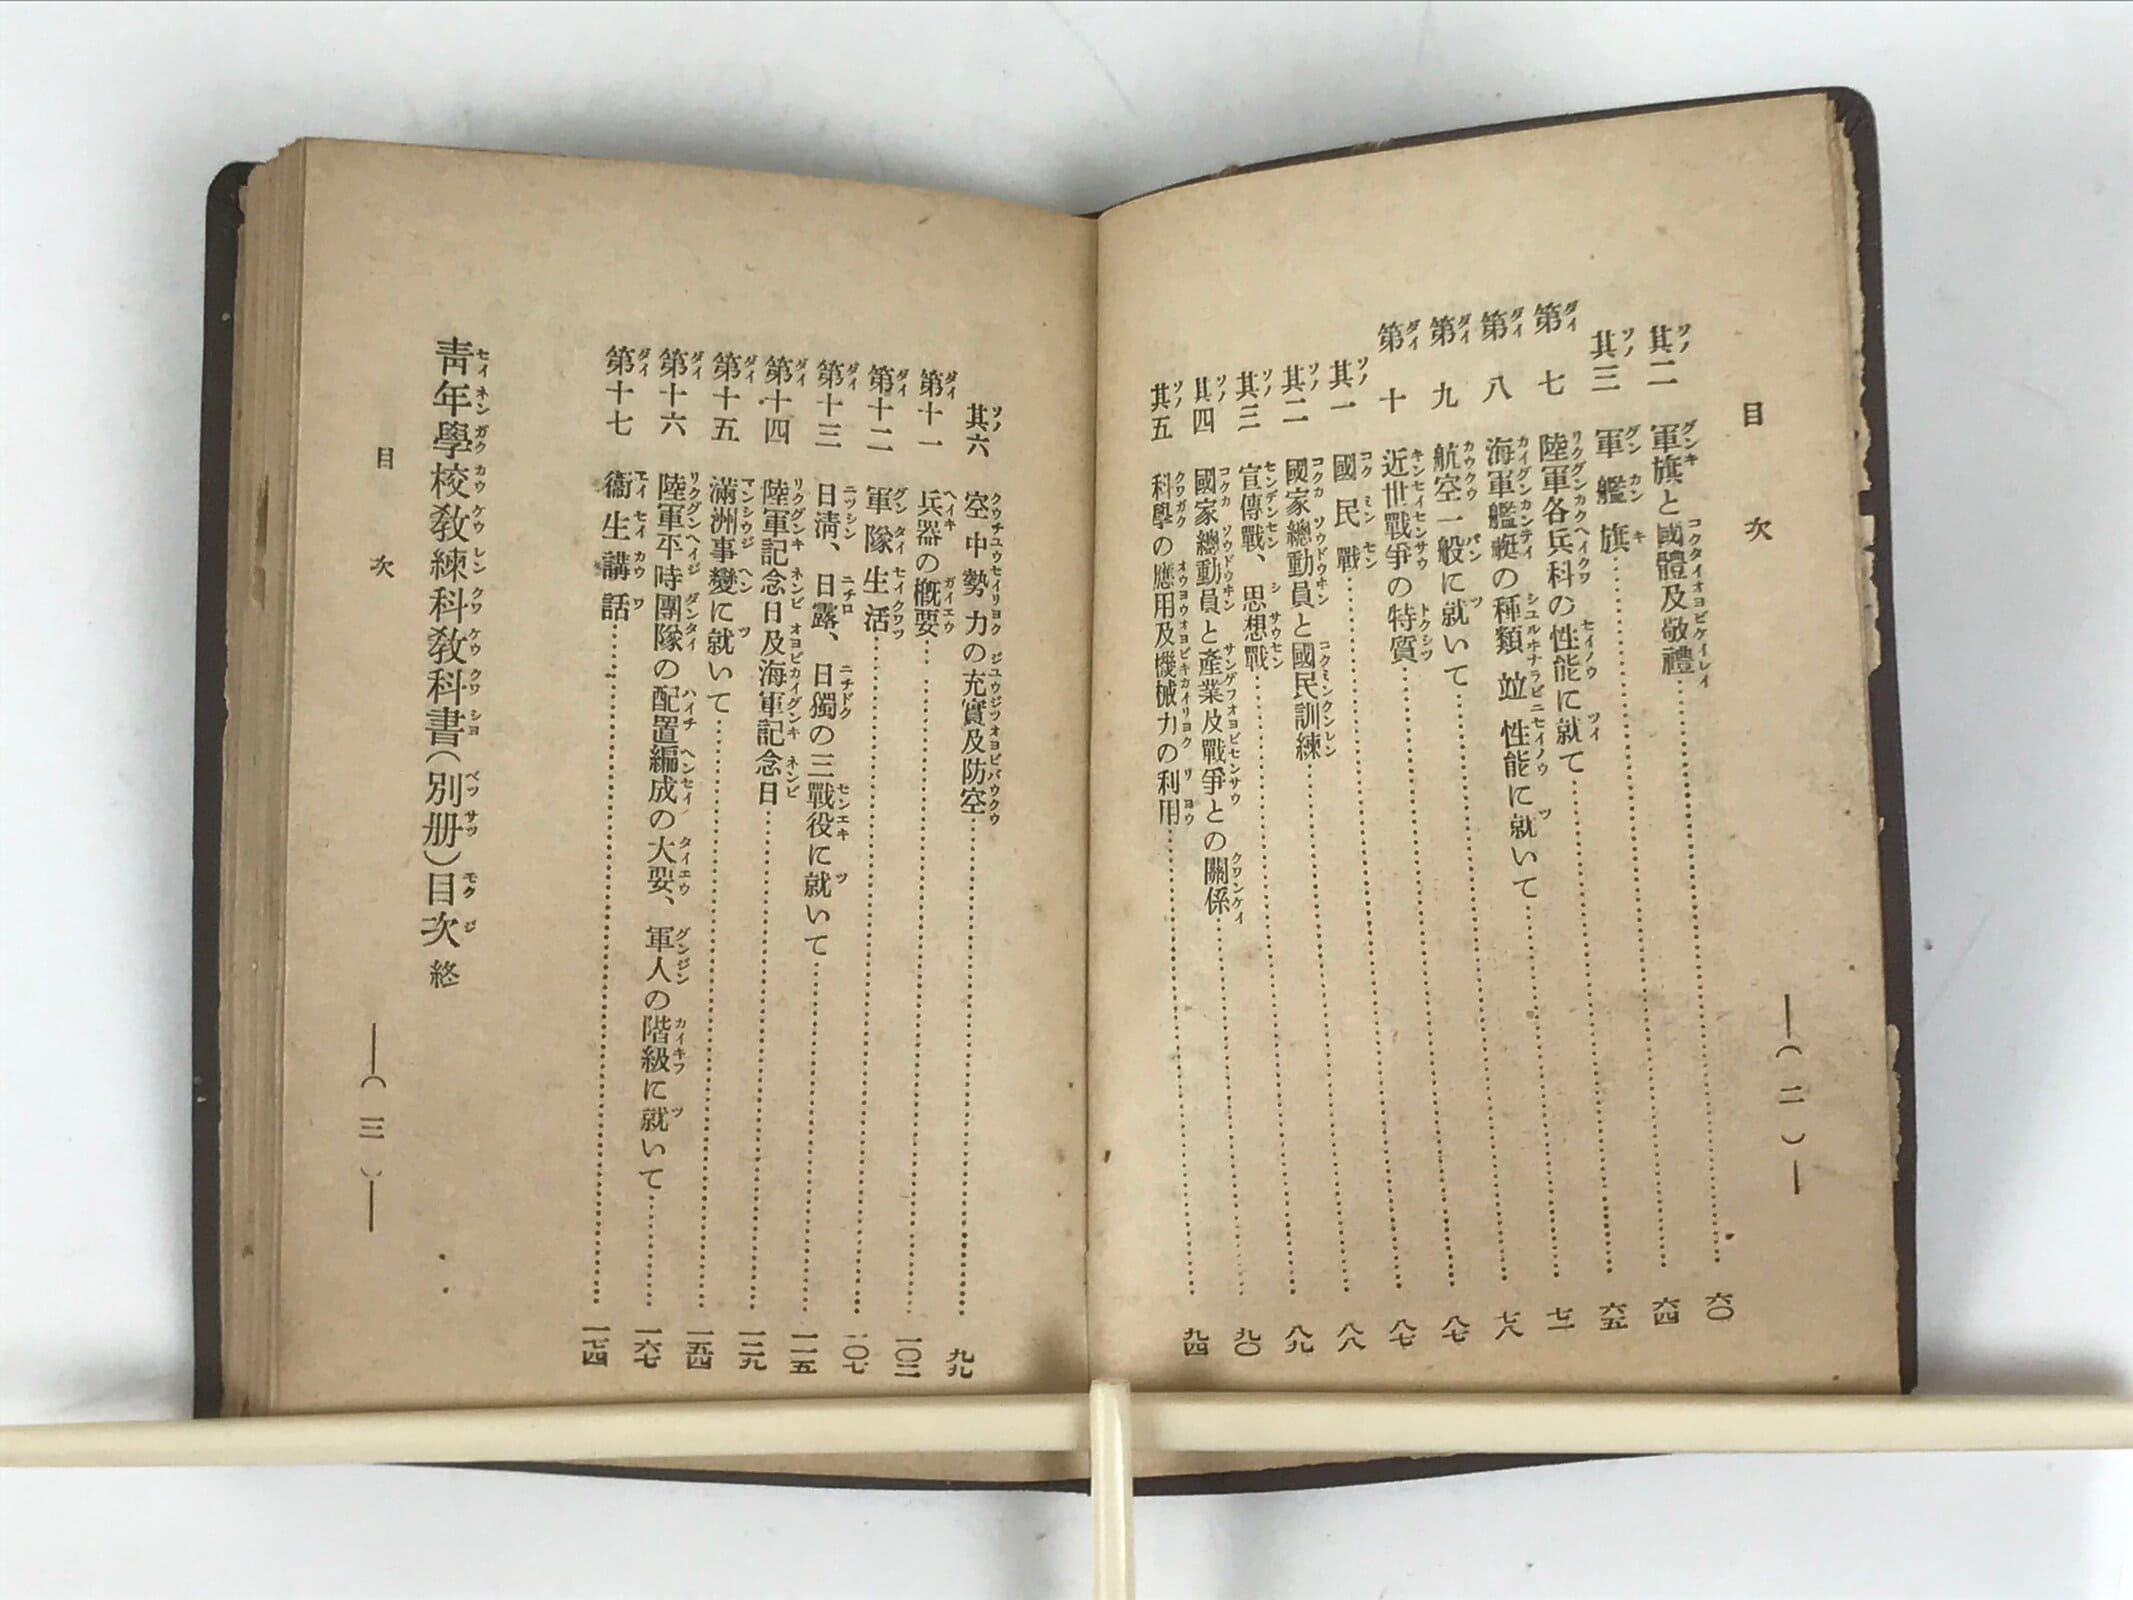 目次
―(二)―
其二 軍旗と國體及敬禮……六〇
其三 軍艦旗……六四
第七 陸軍各兵科の性能に就て……六五
第八 海軍艦艇の種類竝性能に就いて……七一
第九 航空一般に就いて……七八
第十 近世戰爭の特質……八七
其一 國民戰……八七
其二 國家總動員と國民訓練……八八
其三 宣傳戰、思想戰……八九
其四 國家總動員と產業及戰爭との關係……九〇
其五 科學の應用及機械力の利用……九四
其六 空中勢力の充實及防空……九九
第十一 兵器の槪要……一〇二
第十二 軍隊生活……一〇七
第十三 日淸、日露、日獨の三戰役に就いて……一一五
第十四 陸軍記念日及海軍記念日……一二九
第十五 滿洲事變に就いて……一五四
第十六 陸軍平時團隊の配置編成の大要、軍人の階級に就いて……一六七
第十七 衞生講話……一七四
靑年學校敎練科敎科書(別册)目次終
目次
―(三)―